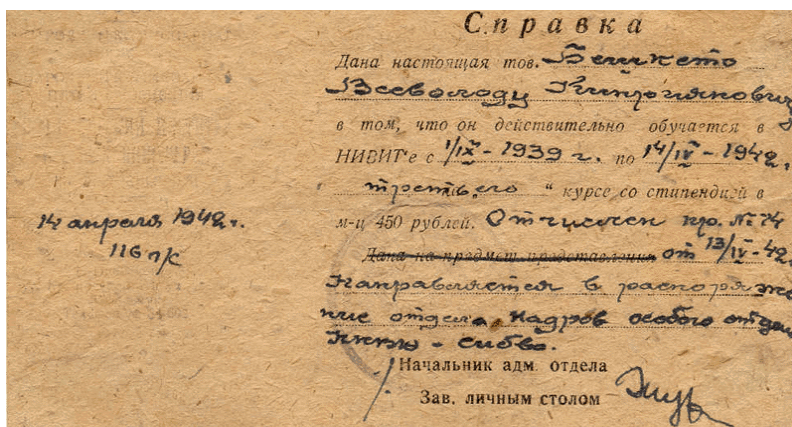 Справка
Дана настоящая тов. Бешкето
Всеволоду Киприяновичу
в том, что он действительно обучается в
НИВИТ'е с 1/IX - 1939 г. по 14/IV - 1942 г.
третьего " курсе со стипендией в
м-ц 450 рублей. Отчислен пр. № 74
Дана на предмет представления от 13/IV - 42 г.
Направляется в распоряже
ние отдела кадров особого отдела
НКВД - Сибво.
Начальник адм. отдела
Зав. личным столом
14 апреля 1942 г.
116 л/с